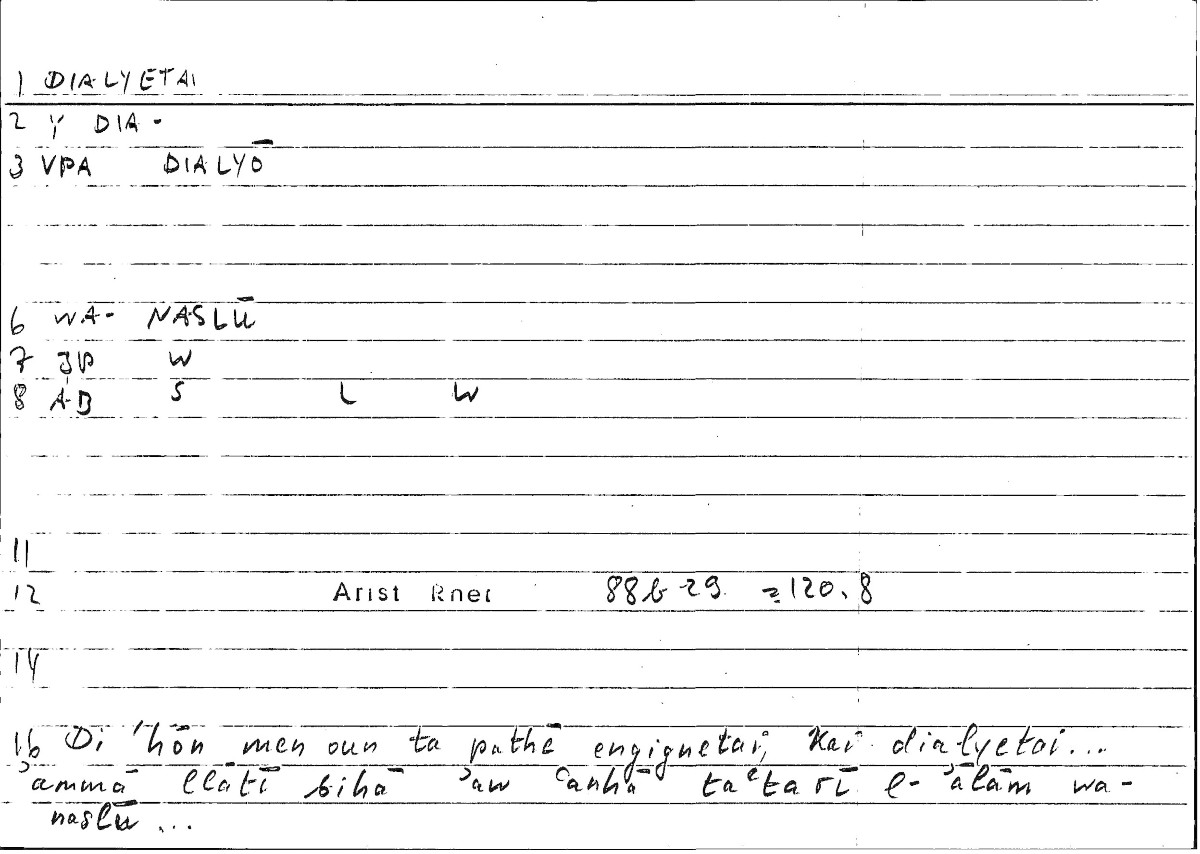 1 DIALYETAI
2 Y DIA-
3 VPA DIALYŌ
6 WA- NASLŪ
7 JP W
8 AB S L W
11
12 Arist Rhet 88b29 =120.8
14
16 Di 'hōn men oun ta pathē engignetai, kai dialyetai...
ʾammā llātī bihā ʾaw ʿanhā taʿtarī l-ʾālām wa-
naslū...